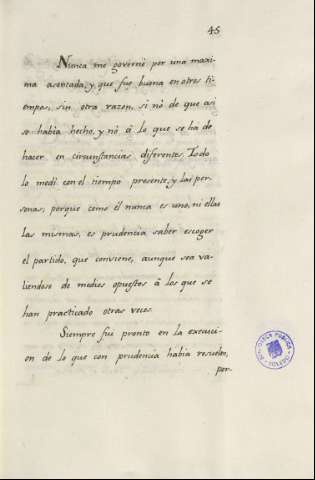 45
Nunca me governè por una maxi-
ma asentada, y que fue buena en otros ti-
empos, sin otra razon, si nò de que asi
se habia hecho, y nò à lo que se ha de
hacer en circunstancias diferentes. Todo
lo medi con el tiempo presente, y las per-
sonas, porque como èl nunca es uno, ni ellas
las mismas, es prudencia saber escoger
el partido, que conviene, aunque sea va-
liendose de medios opuestos à los que se
han practicado otras veces.
Siempre fui pronto en la execuci-
on de lo que con prudencia habia resuelto,
por-
BIBLIOTECA PUBLICA
TOLEDO